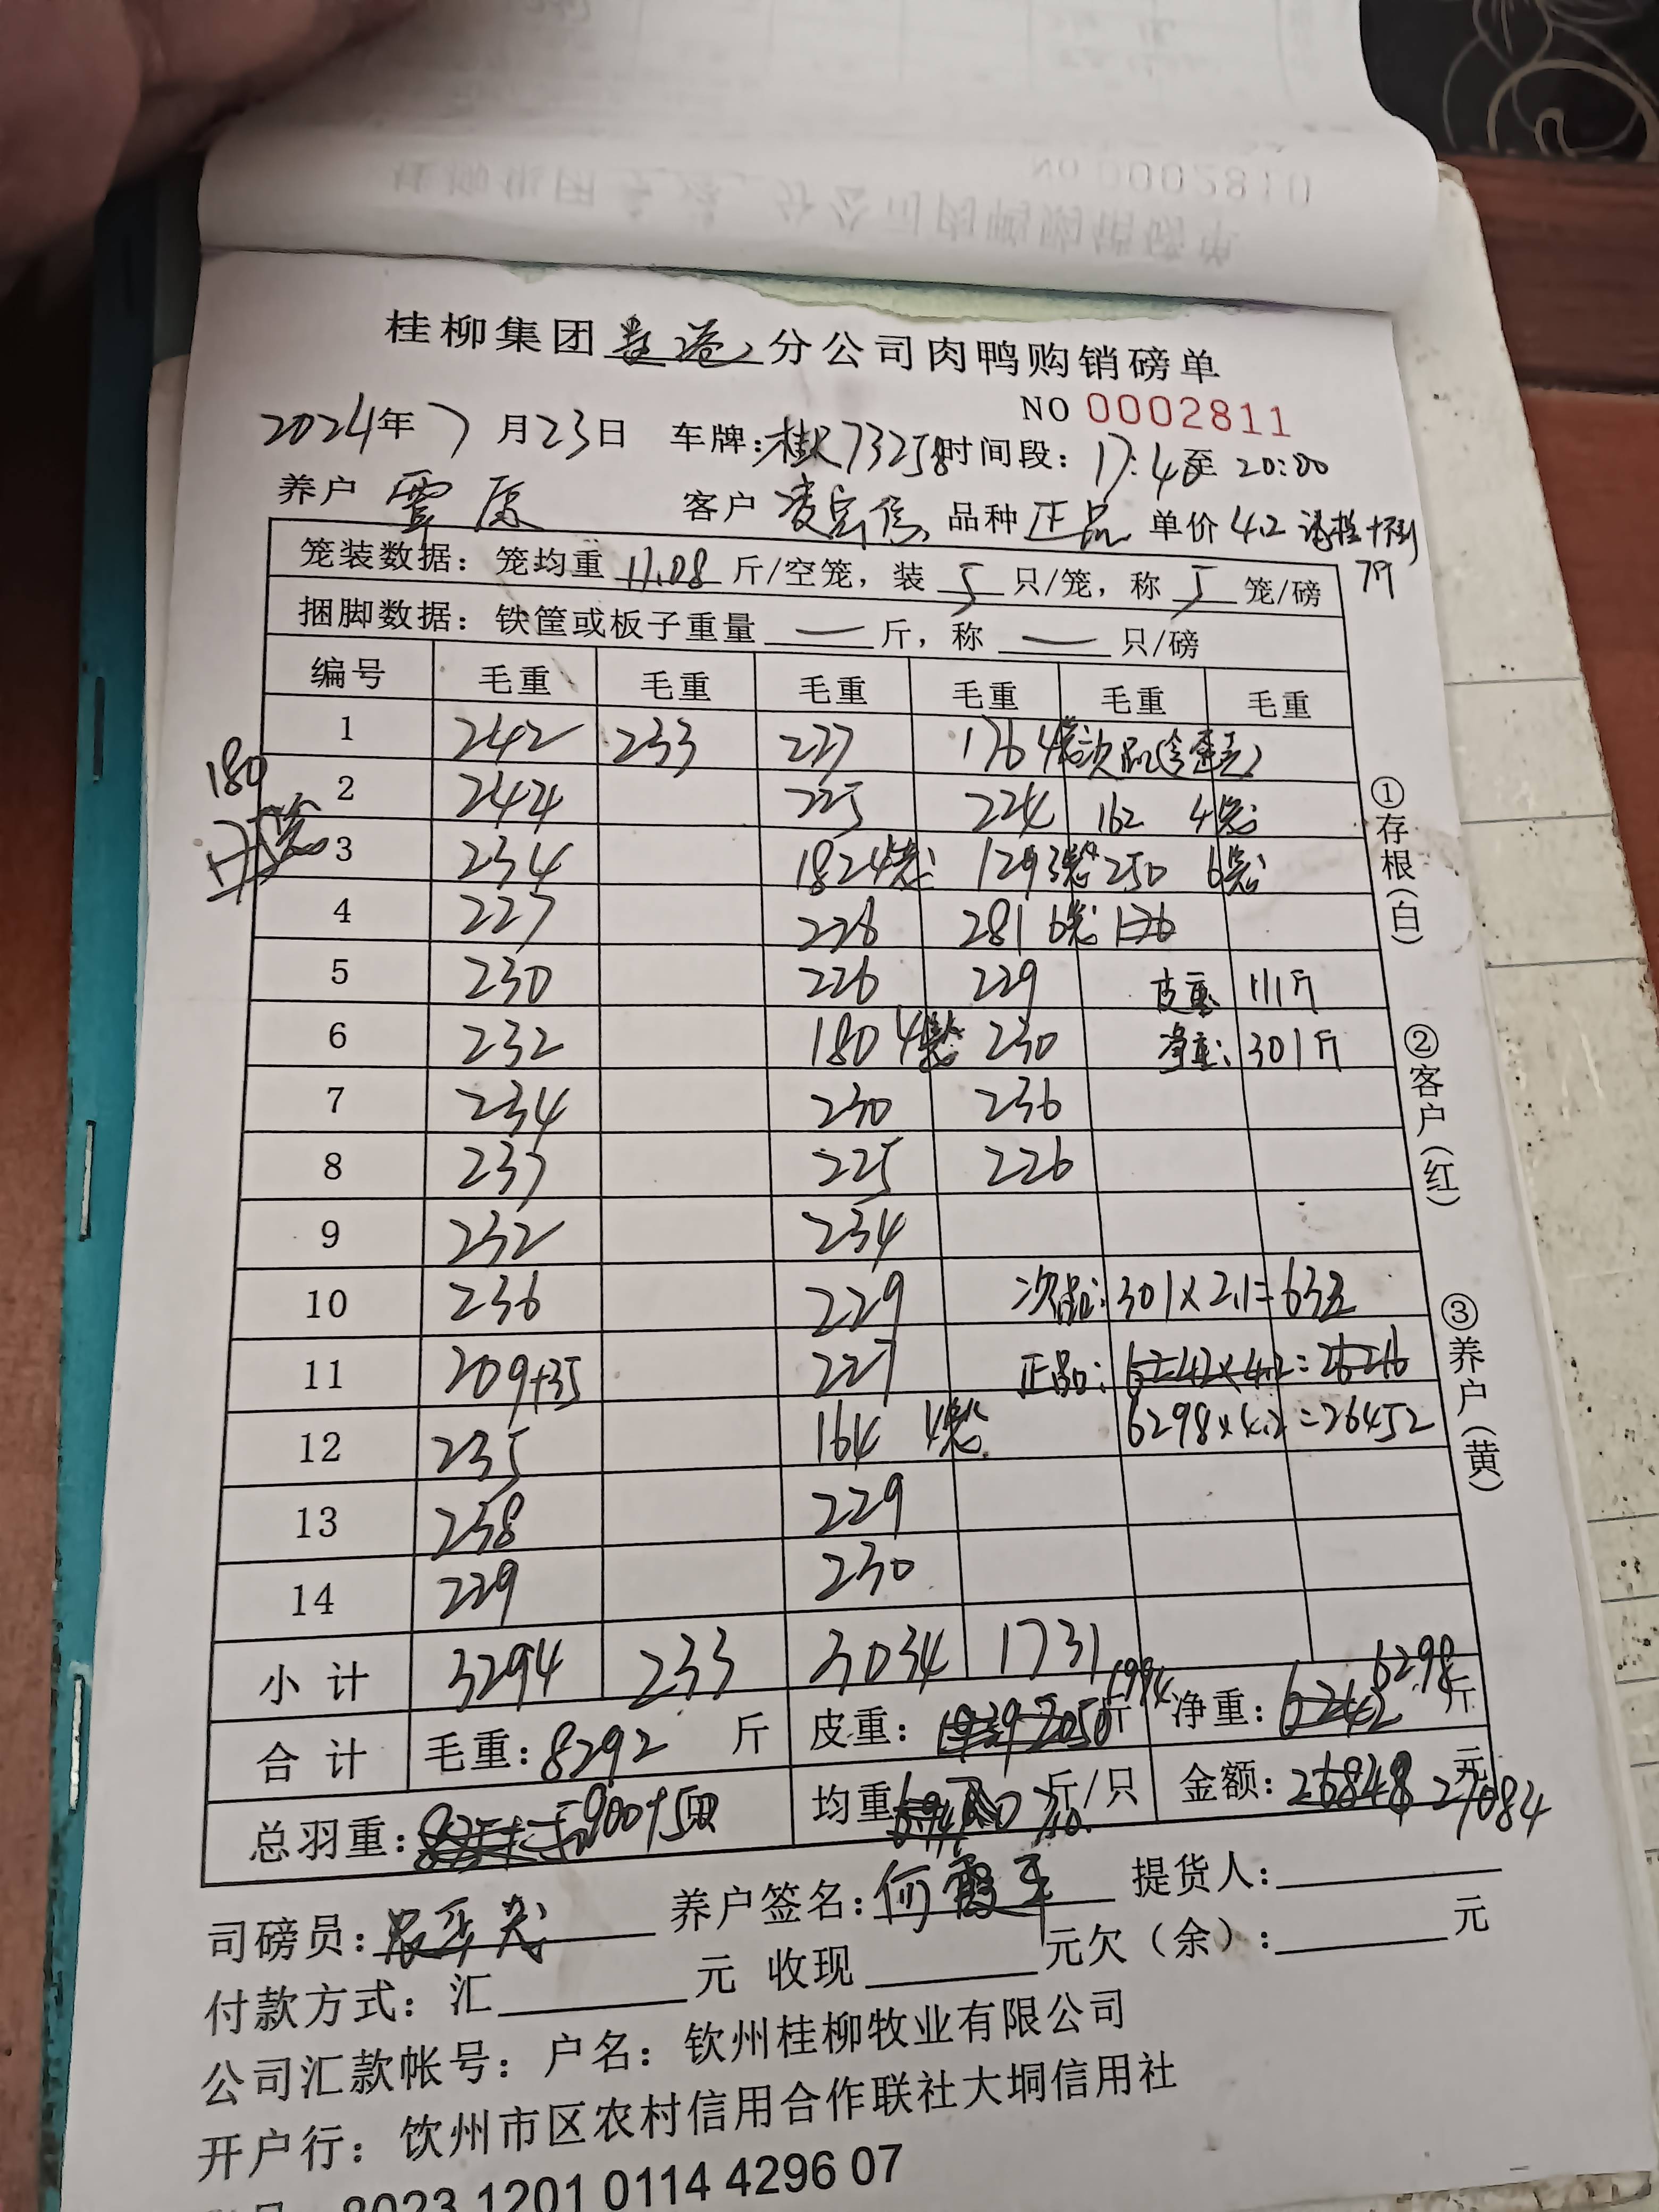 NO 0002810
桂柳集团 分公司肉鸭购销磅单
桂柳集团 分公司肉鸭购销磅单
NO 0002811
2024年7月23日 车牌:桂 73258 时间段: 17:46至20:00
养户 覃 客户 凌 品种 正品 单价 4.2
79
笼装数据: 笼均重 11.08 斤/空笼, 装 5 只/笼, 称 5 笼/磅
捆脚数据: 铁筐或板子重量 — 斤, 称 — 只/磅
编号 毛重 毛重 毛重 毛重 毛重 毛重
1 242 233 227 176 4笼 次品(含歪壳)
180
2 244 225 224 162 4笼
175笼
3 234 182 4笼 129 3笼 250 6笼
4 227 226 281 6笼 126
5 230 226 229 皮重 111斤
6 232 180 4笼 230 净重: 301斤
7 234 230 236
8 237 225 226
9 232 234
10 236 229 次品: 301×2.1=632
11 209+35 227 正品: 6242×4.2=26216
12 235 164 4笼 6298×4.2=26452
13 238 229
14 229 230
小计 3294 233 3034 1731
合计 毛重: 8292 斤 皮重: 2050 1994 斤 净重: 6242 6298 斤
总羽重: 900 均重 斤/只 金额: 26848 27084 元
司磅员: 养户签名: 何霞平 提货人:
付款方式: 汇 元 收现 元欠(余): 元
公司汇款帐号: 户名: 钦州桂柳牧业有限公司
开户行: 钦州市区农村信用合作联社大垌信用社
8023 1201 0114 4296 07
①存根(白)
②客户(红)
③养户(黄)